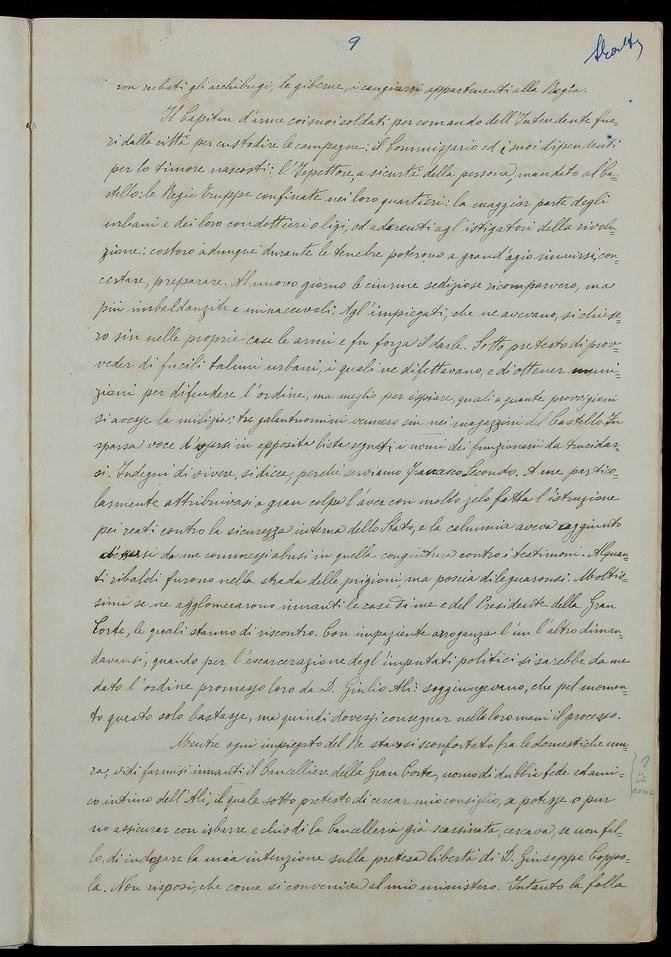 9
ron rubati gli archibugi, le giberne, i cangiarri appartenenti alla Regia.
Il Capitan d'arme coi suoi soldati per comando dell'Intendente fuo-
ri dalla città per custodire le campagne: il Commissario ed i suoi dipendenti
per lo timore nascosti: l'Ispettore, a sicurtà della persona, mandato al Ca-
stello: le Regie Truppe confinate nei loro quartieri: la maggior parte degli
urbani e dei loro condottieri o ligi, od aderenti agl'istigatori della rivolu-
zione: costoro adunque durante le tenebre poterono a grand'agio riunirsi, con-
certare, preparare. Al nuovo giorno le ciurme sediziose ricomparvero, ma
più imbaldanzite e minaccevoli. Agl'impiegati, che ne avevano, si chiese-
ro sin nelle proprie case le armi e fu forza il darle. Sotto pretesto di prov-
veder di fucili taluni urbani, i quali ne difettavano, e di ottener muni-
zioni per difendere l'ordine, ma meglio per ispiare, quali e quante provvigioni
si avesse la milizia; tre galantuomini vennero sin nei magazzini del Castello. Fu
sparsa voce d'essersi in apposita lista segnati i nomi dei funzionarii da trucidar-
si. Indegni di vivere, si dicea, perchè serviamo Francesco Secondo. A me partico-
larmente attribuivasi a gran colpa l'aver con molto zelo fatta l'istruzione
pei reati contro la sicurezza interna dello Stato, e la calunnia aveva aggiunto
d'essersi da me commessi abusi in quella congiuntura contro i testimoni. Alquan-
ti ribaldi furono nella strada delle prigioni, ma poscia dileguaronsi. Moltis-
simi se ne agglomerarono innanti le case di me e del Presidente della Gran
Corte, le quali stanno di riscontro. Con impaziente arroganza l'un l'altro diman-
davansi, quando per l'escarcerazione degl'imputati politici si sarebbe da me
dato l'ordine promesso loro da D. Giulio Alì: soggiungevano, che pel momen-
to questo solo bastasse, ma quindi dovessi consegnar nelle loro mani il processo.
Mentre ogni impiegato del Re stavasi sconfortato fra le domestiche mu-
ra, vidi farmisi innanti il Cancelliere della Gran Corte, uomo di dubbia fede ed ami-
co intimo dell'Alì, il quale sotto pretesto di cercar mio consiglio, se potesse o pur
no assicurar con isbarre e chiodi la Cancelleria già scassinata, cercava, se non fal-
lo, di indagare la mia intenzione sulla pretesa libertà di D. Giuseppe Coppo-
la. Non risposi, che come si conveniva al mio ministero. Intanto la folla
? il nome